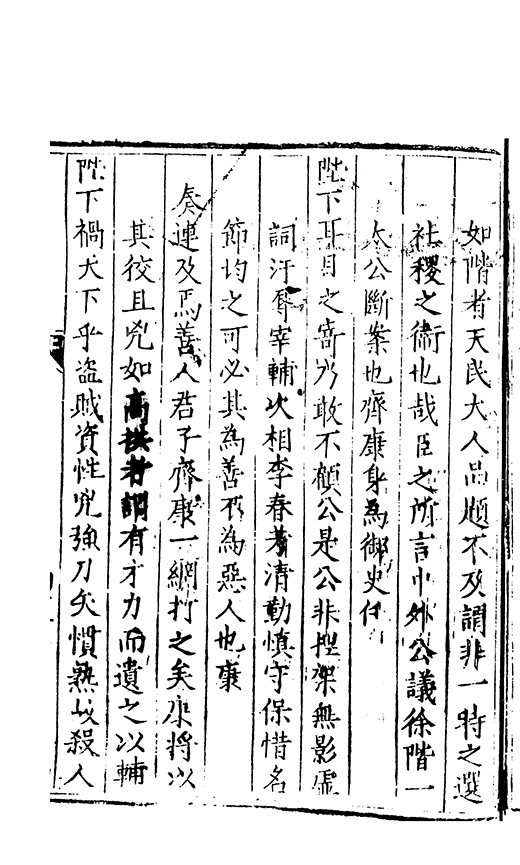 如階者天民大人品順不及謂非一時之選
社稷之衛也哉臣之所言中外公議徐階一
大公斷案也齊康身為御史任
陛下耳目之寄乃敢不顧公是公非捏架無影虛
詞汙辱宰輔次相李春芳清勤慎守保惜名
節均之可必其為善不為惡人也康
奏連及焉善人君子齊康一網打之矣康將以
其狡且兇如高拱者謂有才力而遺之以輔
陛下禍天下乎盜賊資性兇強刀矢慣熟以殺人